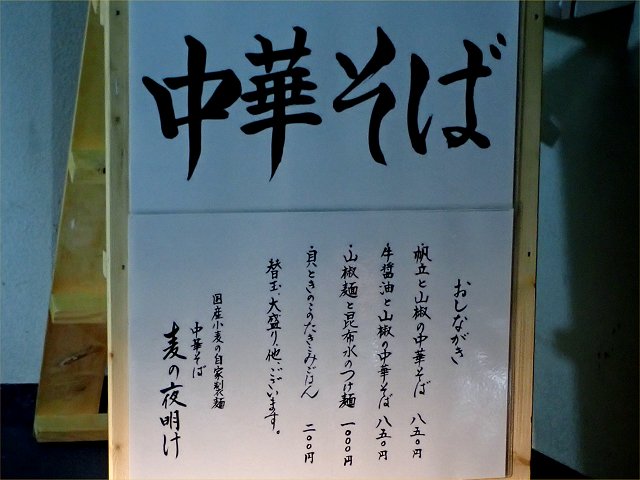 中華そば
おしながき
帆立と山椒の中華そば 八五〇円
牛醤油と山椒の中華そば 八五〇円
山椒麺と昆布水のつけ麺 一〇〇〇円
貝ときのこのたきこみごはん 二〇〇円
替玉、大盛り、他、ございます。
国産小麦の自家製麺
中華そば
麦の夜明け